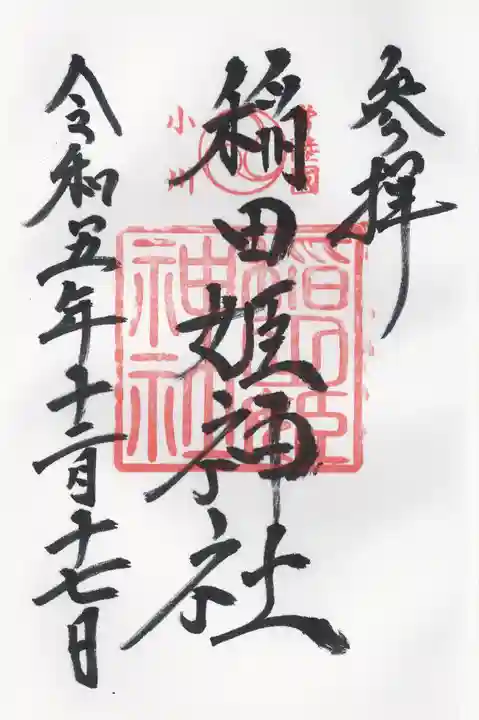 参拝
常陸国
小川
稲田姫神社
稲田姫神社
令和五年十二月十七日